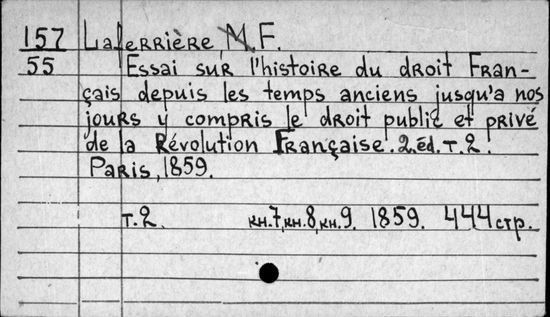 157 Laferrière M.F.
55 Essai sur l'histoire du droit Fran-
çais depuis les temps anciens jusqu'a nos
jours y compris le droit public et privé
de la Révolution Française. 2.éd. т.2.
Paris, 1859.
т.2. кн.7, кн.8, кн.9. 1859. 444 стр.